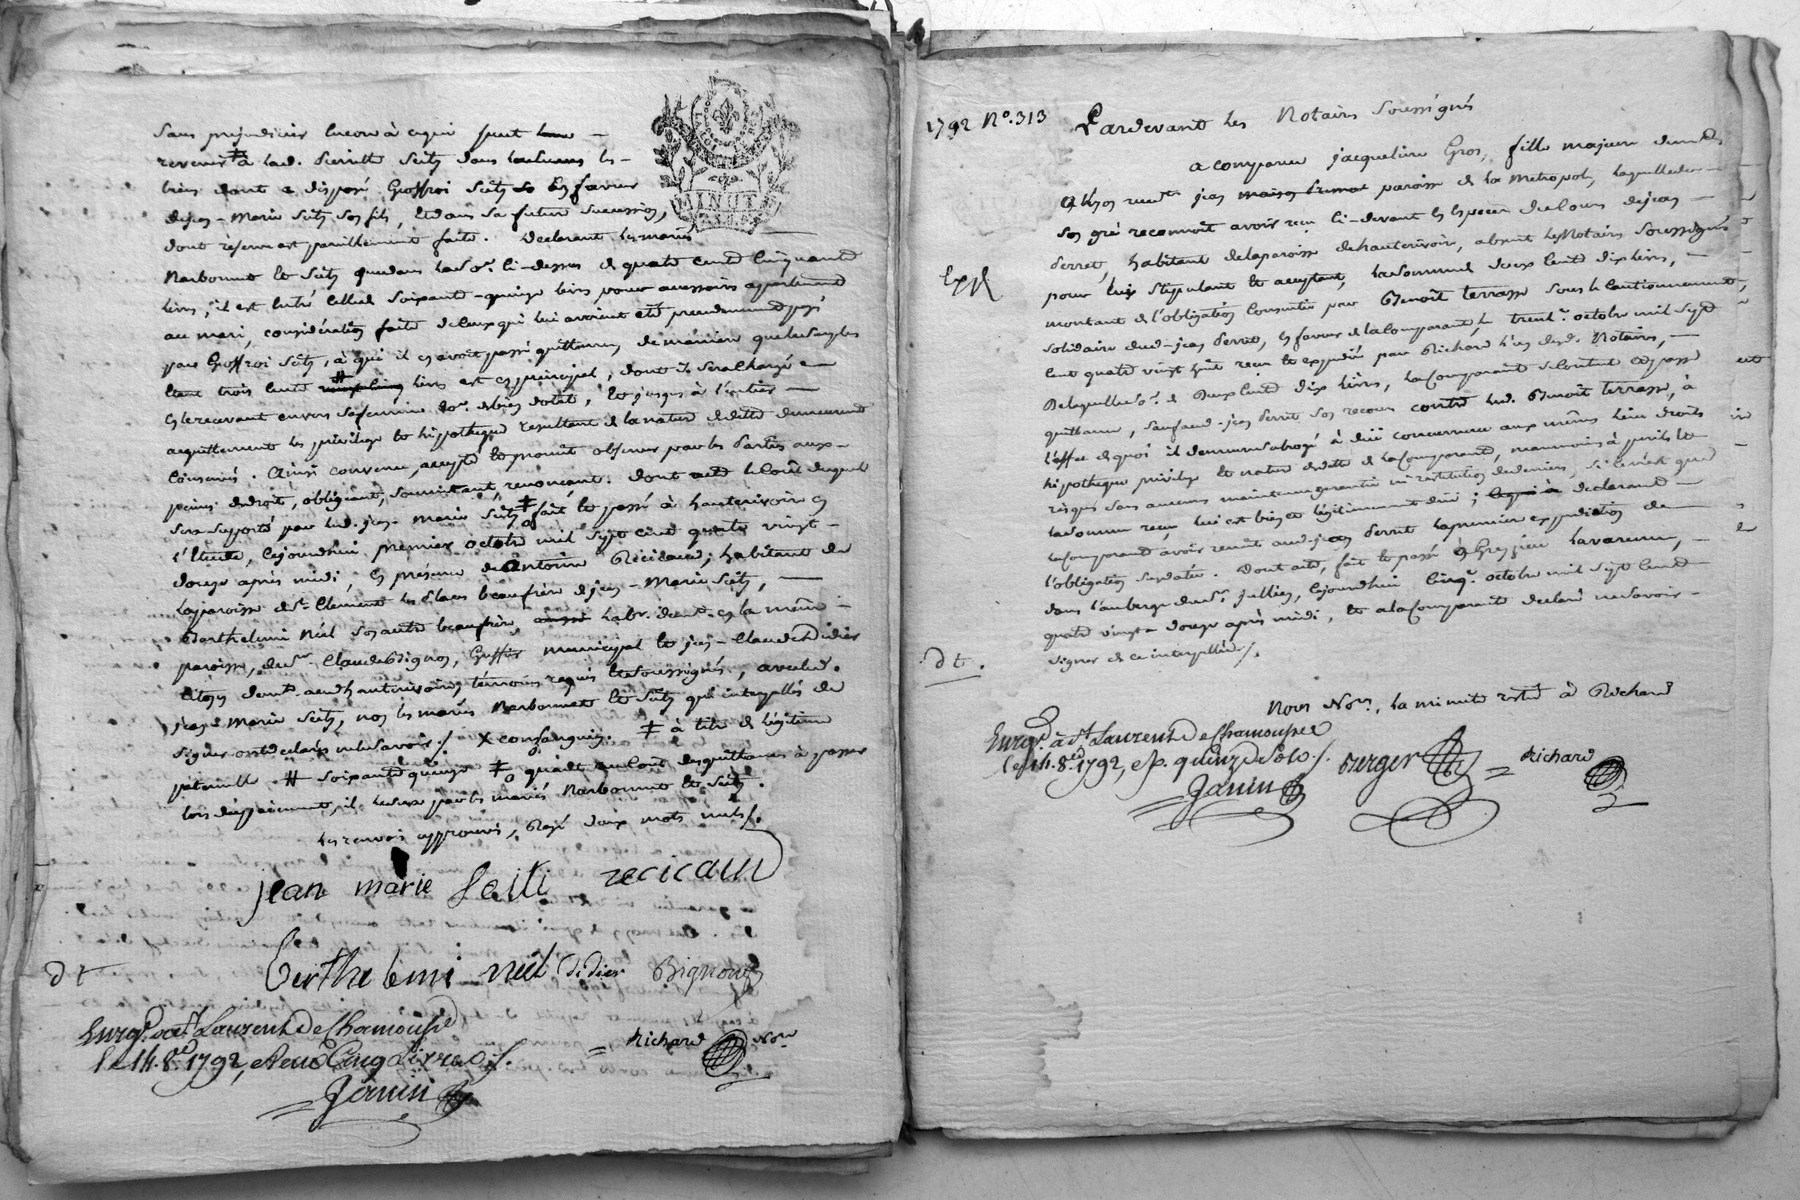 sans prejudicier encore à ce qui peut
revenir à lad. Pierrette Seitz dans les
biens dont a disposé Geoffroi Seitz en faveur
de jean-Marie Seitz son fils, et dans sa future succession,
dont réserve est pareillement faite. Declarant les mariés
Narbonnet et Seitz que dans la So.e ci-dessus de quatre cent cinquante
livres, il est entré celle de soixante-quinze livres pour accessoires apartenant
au mari, considération faite de ceux qui lui avoient été précedemment payés
par Geoffroi Seitz, à qui il en avoit passé quittance, de manière que
trois cent livres est en principal, dont il sera chargé
en le recevant envers sa femme et jusques à l'entier
acquittement les privilège et hipothèque résultant de la nature de dette demeurent
conservés. Ainsi convenu, accepté et promis observer par les Parties aux
peines de droit, obligeant, soumettant, renonçant. Dont acte le coût duquel
sera supporté par led. jean-Marie Seitz, fait et passé à hauterivoire en
l'Etude, cejourdhui premier octobre mil sept cent quatre vingt-
douze après midi, en présence de Antoine Récicaud, habitant de
la paroisse de St. Clement les Places beaufrère de jean-Marie Seitz,
Barthelemi Néel son autre beaufrère, hab.t en la même
paroisse, de Sr. Claude Bignon, Greffier municipal et jean-Claude Didier
citoyen aud. hauterivoire, témoins requis et soussignés, avec led.
jean Marie Seitz, non les mariés Narbonnet et Seitz qui interpellés de
signer ont déclaré ne le savoir ./. X consanguin. ‡ à titre de légitime
paternelle # soixante quinze ‡ quant au coût des quittances à passer
lors des paiement, il sera par les mariés Narbonnet et Seitz.
les renvois approuvés, Rayé deux mots nuls ./.
jean marie Seiti recicaud
berthelemi néel Didier Bignon
dt
Enregt. à St. Laurent de Chamousset
le 14. 8.bre 1792, Reçu Cinq Livres ./.
Richard No.re
Janin
MINUTE
1792 No. 313
Pardevant les Notaires soussignés
a comparu jacqueline Gros, fille majeure
paroisse de la Metropole, laquelle de
son gré reconnoît avoir reçu ci-devant en Especes de cours de jean
Perret, habitant de la paroisse de hauterivoire, absent les Notaires soussignés
pour lui stipulant et acceptant, la somme de deux cent dix livres,
montant de l'obligation consentie par Benoît terrasse sous le cautionnement
solidaire dud. jean Perret, en faveur de la Comparante le trente. octobre mil sept
cent quatre vingt huit reçue et expediée par Richard l'un desd. Notaires,
De laquelle so.e de deux cent dix livres, la Comparante se contente et passe
quittance, sauf aud. jean Perret son recours contre led. Benoît terrasse, à
l'effet de quoi il demeure subrogé à dûe concurrence aux mêmes lieu droits
hipotheque privilège et nature de dette de la Comparante, neanmoins à perils et
risques sans aucune maintenue garantie ni restitution de deniers, si ce n'est que
la somme reçue lui est bien et légitimement dûe; declarant
la Comparante avoir remis aud. jean Perret la premiere expedition de
l'obligation susdatée. Dont acte, fait et passé à Grezieu lavarenne,
dans l'auberge du Sr. jullien, cejourdhui cinq. octobre mil sept cent
quatre vingt-douze après midi, et a la Comparante declaré ne savoir
signer de ce interpellée ./.
Exp.
dt.
Nous No.res, la minute resté à Richard
Enregt. à St. Laurent de Chamousset
le 14. 8.bre 1792, Rç. quinze Sols ./.
Berger
Richard
Janin